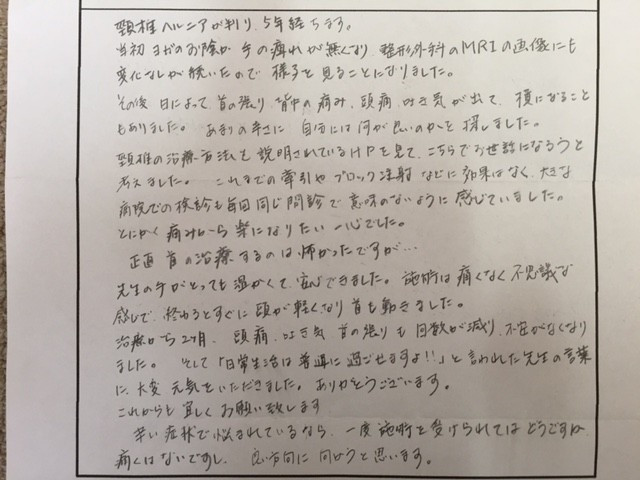 頸椎ヘルニアが判り、5年経ちます。
当初ヨガのお陰か手の痺れが無くなり、整形外科のMRIの画像にも
変化なしが続いたので様子を見ることになりました。
その後日によって、首の張り、背中の痛み、頭痛、吐き気が出て、横になること
もありました。あまりの辛さに自分には何が良いのかを探しました。
頸椎の治療方法を説明されているHPを見て、こちらでお世話になろうと
考えました。これまでの牽引やブロック注射などに効果はなく、大きな
病院での検診も毎回同じ問診で意味のないように感じていました。
とにかく痛みから楽になりたい一心でした。
正直首の治療するのは怖かったですが…
先生の手がとっても温かくて、安心できました。施術は痛くなく不思議な
感じで、終わるとすぐに頭が軽くなり首も動きました。
治療から2ヶ月、頭痛、吐き気、首の張りも回数が減り、不安がなくなり
ました。そして「日常生活は普通に過ごせますよ!!」と言われた先生の言葉
に、大変元気をいただきました。ありがとうございます。
これからも宜しくお願い致します
辛い症状で悩まれているなら、一度施術を受けられてはどうですか、
痛くはないですし、良い方向に向かうと思います。